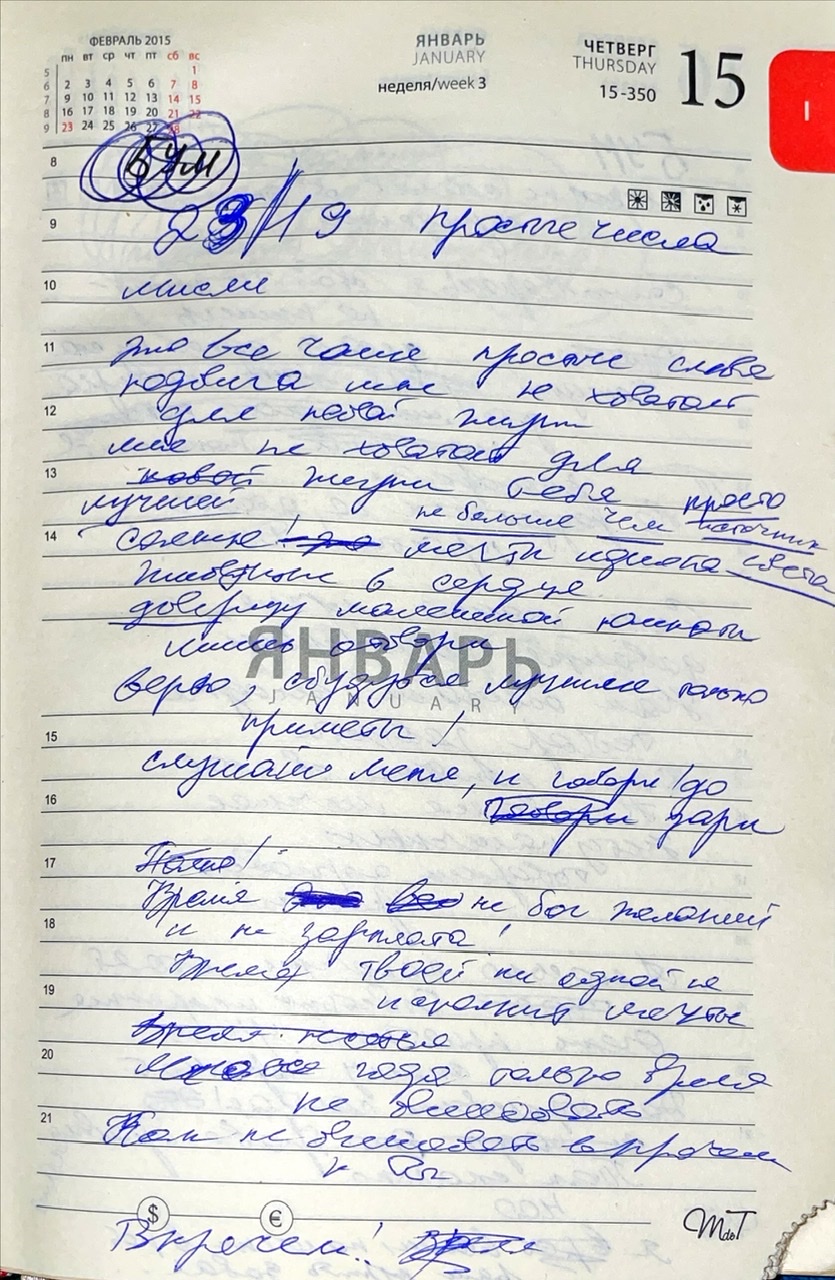 ФЕВРАЛЬ 2015
пн вт ср чт пт сб вс
5 1
6 2 3 4 5 6 7 8
7 9 10 11 12 13 14 15
8 16 17 18 19 20 21 22
9 23 24 25 26 27 28
ЯНВАРЬ
JANUARY
неделя/week 3
ЧЕТВЕРГ
THURSDAY
15-350
15
I
8
БУМ
9
23/19 простые числа
10
мысли
11
это все чаще простые слова
подвига мне не хватает
12
для новой жизни
мне не хватает для
13
новой жизни тебя просто
лучшей не больше чем источник
14
солнце! мечты идиота света
в сердце
маленькой комнаты
лишь отвори
ЯНВАРЬ
JANUARY
верю, сбудутся лучшие только
15
приметы!
слушай меня, и говори! до
16
говори зари
17
18
Время не бог желаний
и не зарплата!
Время твоей ни одной не
19
исполнит мечты
Время
20
года только время
не
21
Как не в прочем
и Вы
$ €
MdeT
Впрочем!